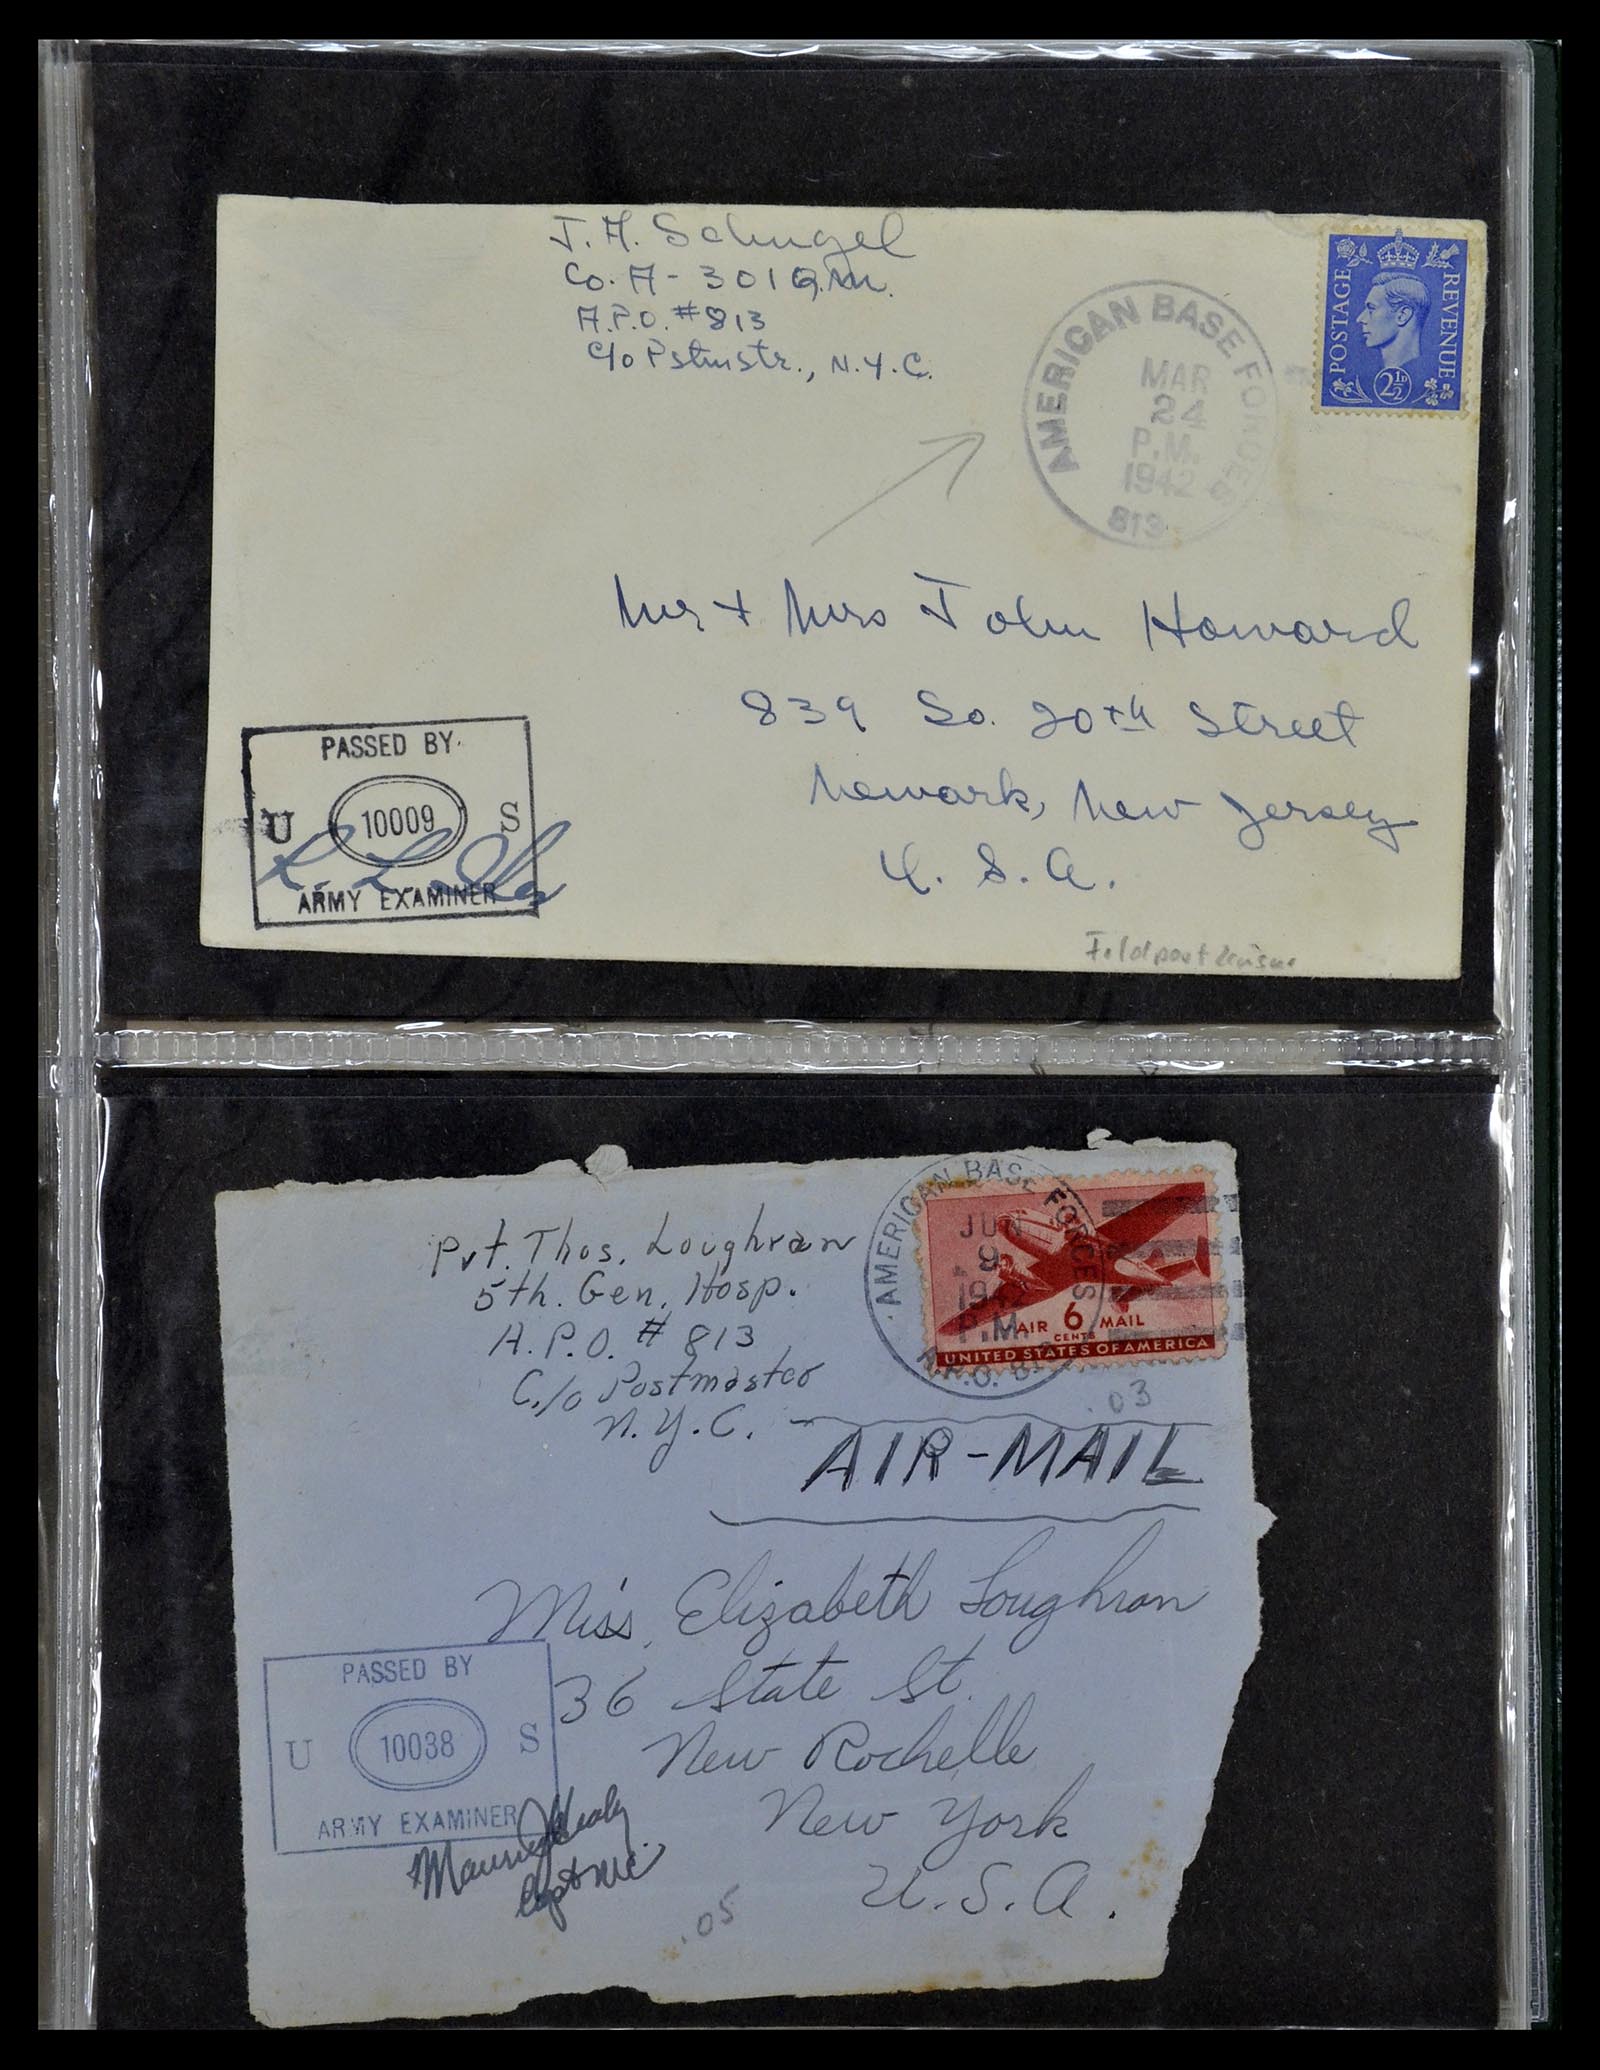 J. A. Schugel
Co. A - 301 Q.M.
A.P.O. #813
c/o Pstmstr., N.Y.C.
AMERICAN BASE FORCES
MAR
24
P.M.
1942
813
POSTAGE
REVENUE
2½D
Mr + Mrs John Howard
839 So. 20th Street
Newark, New Jersey
U. S. A.
PASSED BY
U 10009 S
ARMY EXAMINER
Pvt. Thos. Loughran
5th. Gen. Hosp.
A.P.O. # 813
C/o Postmaster
N.Y.C.
AMERICAN BASE FORCES
JUN
9
1942
P.M.
A.P.O. 813
AIR 6 MAIL
CENTS
UNITED STATES OF AMERICA
.03
AIR-MAIL
Miss. Elizabeth Loughran
36 State St.
New Rochelle
New York
U.S.A.
PASSED BY
U 10038 S
ARMY EXAMINER
Capt MC
.05